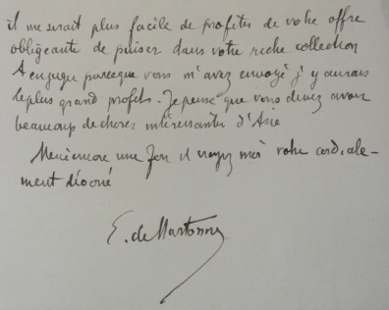 il me serait plus facile de profiter de votre offre
obligeante de puiser dans votre riche collection
A en juger par ce que vous m'avez envoyé j'y aurais
le plus grand profit. Je pense que vous devez avoir
beaucoup de choses intéressantes d'Asie
Merci encore une fois et croyez moi votre cordiale-
ment dévoué
E. de Martonne